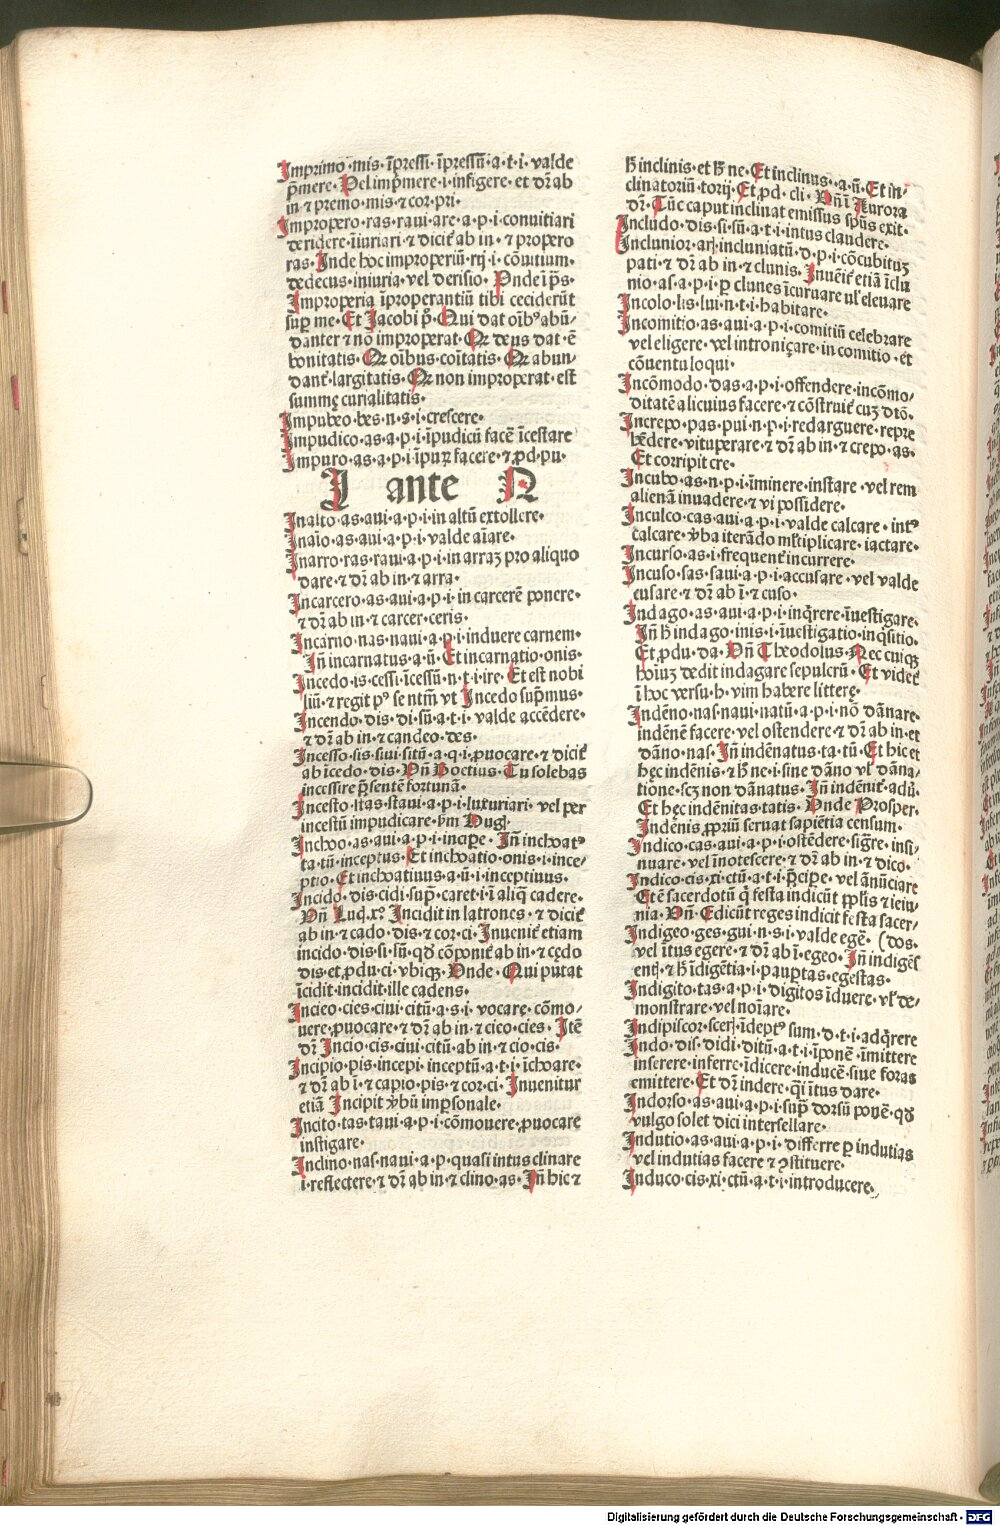 Imprimo·mis·īpressi·īpressū·a·t·i·valde
p̄mere·Vel imp̄mere·i·infigere·et dr̄ ab
in ⁊ premo·mis·⁊ cor·pri·
Impropero·ras·raui·are·a·p·i·conuitiari
deridere·iīuriari·⁊ dicit᷑ ab in·⁊ propero
ras·Inde hoc improperiū·rij·i·cōuitium·
dedecus·iniuria·vel derisio·Vnde ī ps̄·
Improperia īproperantiū tibi ceciderūt
suꝑ me·Et Jacobi pͦ·Qui dat oībꝰ abū/
danter ⁊ nō improperat·Qꝛ deus dat·ē
bonitatis·Qꝛ oībus·coītatis·Qꝛ abun/
dant᷑·largitatis·Qꝛ non improperat·est
summę curialitatis·
Impubeo·bes·n·s·i·crescere·
Impudico·as·a·p·i·īpudicū facē īcestare
Impuro·as·a·p·i·īpuꝝ facere·⁊ ꝓd·pu·
I ante N
Inalto·as·aui·a·p·i·in altū extollere·
Inaīo·as·aui·a·p·i·valde aīare·
Inarro·ras·raui·a·p·i·in arraꝫ pro aliquo
dare·⁊ dr̄ ab in·⁊ arra·
Incarcero·as·aui·a·p·i·in carcerē ponere·
⁊ dr̄ ab in·⁊ carcer·ceris·
Incarno·nas·naui·a·p·i·induere carnem·
Iñ incarnatus·a·ū·Et incarnatio·onis·
Incedo·is·cessi·īcessū·n·t·i·ire·Et est nobi
liū·⁊ regit pꝰ se ntm̄ vt Incedo suꝑmus·
Incendo·dis·di·sū·a·t·i·valde accēdere·
⁊ dr̄ ab in·⁊ candeo·des·
Incesso·sis·siui·sitū·a·q·i·ꝓuocare·⁊ dicit᷑
ab īcedo·dis·Vñ Boetius·Tu solebas
incessire p̄sentē fortunā·
Incesto·stas·staui·a·p·i·luxuriari·vel per
incestū impudicare·ẜm Hug·
Inchoo·as·aui·a·p·i·inciꝑe·Iñ inchoatꝰ
ta·tū·inceptus·Et inchoatio·onis·i·ince/
ptio·Et inchoatiuus·a·ū·i·inceptinus·
Incido·dis·cidi·suꝑ·caret·i·ī aliꝗ cadere·
Vñ Luc̄·xͦ Incidit in latrones·⁊ dicit᷑
ab in·⁊ cado·dis·⁊ cor·ci·Inuenit᷑ etiam
incido·dis·si·sū·qd̄ cōponit᷑ ab in·⁊ cędo
dis·et ꝓdu·ci·vbiqꝫ·Vnde·Qui putat
īcidit·incidit·ille cadens·
Incieo·cies·ciui·citū·a·s·i·vocare·cōmo/
uere·ꝓuocare·⁊ dr̄ ab in·⁊ cieo·cies·Itē
dr̄ Incio·cis·ciui·citū·ab in·⁊ cio·cis·
Incipio·pis·incepi·inceptū·a·t·i·īchoare·
⁊ dr̄ ab ī·⁊ capio·pis·⁊ cor·ci·Inuenitur
etiā Incipit v̄bū imꝑsonale·
Incito·tas·taui·a·p·i·cōmouere·ꝓuocare
instigare·
Inclino·nas·naui·a·p·quasi intus clinare
i·reflectere·⁊ dr̄ ab in·⁊ clino·as·Iñ hic ⁊
h̄ inclinis·et h̄ ne·Et inclinus·a·ū·Et in/
clinatoriū·torij·Et ꝓd·cli·Vñ ī Aurora
dr̄·Tūc caput inclinat emissus sp̄us exit·
Includo·dis·si·sū·a·t·i·intus claudere·
Inclunior·ari·incluniatū·d·p·i·cōcubituꝫ
pati·⁊ dr̄ ab in·⁊ clunis·Inuēit᷑ etiā īclu
nio·as·a·p·i·ꝑ clunes īcuruare ul᷑ eleuare
Incolo·lis·lui·n·t·i·habitare·
Incomitio·as·aui·a·p·i·comitiū celebrare
vel eligere·vel introniçare·in comitio·et
cōuentu loqui·
Incōmodo·das·a·p·i·offendere·incōmo/
ditatē alicuius facere·⁊ cōstruit᷑ cuꝫ dtō·
Increpo·pas·pui·n·p·i·redarguere·repre
hēdere·vituperare·⁊ dr̄ ab in·⁊ crepo·as·
Et corripit cre·
Incubo·as·n·p·i·īminere·instare·vel rem
alienā inuadere·⁊ vi possidere·
Inculco·cas·aui·a·p·i·valde calcare·intꝰ
calcare·v̄ba iterādo ml᷑tiplicare·iactare·
Incurso·as·i·frequent᷑ incurrere·
Incuso·sas·saui·a·p·i·accusare·vel valde
cusare·⁊ dr̄ ab ī·⁊ cuso·
Indago·as·aui·a·p·i·inq̄rere·īuestigare·
Iñ h̄ indago·inis·i·īuestigatio·inq̄sitio·
Et ꝓdu·da·Vñ Theodolus·Nec cuiqꝫ
hoīuꝫ dedit indagare sepulcrū·Et videt᷑
ī hoc versu·h·vim habere litterę·
Indēno·nas·naui·natū·a·p·i·nō dānare·
indēnē facere·vel ostendere·⁊ dr̄ ab in·et
dāno·nas·Iñ indēnatus·ta·tū·Et hic et
hęc indēnis·⁊ h̄ ne·i·sine dāno vl᷑ dāna/
tione·scꝫ non dānatus·Iñ indēnit᷑·adū·
Et hęc indēnitas·tatis·Vnde Prosper·
Indēnis ꝓpriū seruat sapiētia censum·
Indico·cas·aui·a·p·i·ostēdere·sigr̄e·insi/
nuare·vel īnotescere·⁊ dr̄ ab in·⁊ dico·
Indico·cis·xi·ctū·a·t·i·p̄cipe·vel ānūciare
Et ē sacerdotū q̄ festa indicūt pp̄lis ⁊ ieiu/
nia·Vñ·Edicūt reges indicit festa sacer/
Indigeo·ges·gui·n·s·i·valde egē·(dos·
vel ītus egere·⁊ dr̄ ab ī·egeo·Iñ indigēs
entꝭ·⁊ h̄ īdigētia·i·pauꝑtas·egestas·
Indigito·tas·a·p·i·digitos īduere·vl᷑ de/
monstrare·vel noīare·
Indipiscor·sceri·īdeptꝰ sum·d·t·i·adq̄rere
Indo·dis·didi·ditū·a·t·i·īponē·īmittere
inserere·inferre·īdicere·inducē·siue foras
emittere·Et dr̄ indere·q̄i ītus dare·
Indorso·as·aui·a·p·i·suꝑ dorsū ponē·qd̄
vulgo solet dici intersellare·
Indutio·as·aui·a·p·i·differre ꝑ indutias
vel indutias facere ⁊ ꝯstituere·
Induco·cis·xi·ctū·a·t·i·introducere·
Digitalisierung gefördert durch die Deutsche Forschungsgemeinschaft - DFG